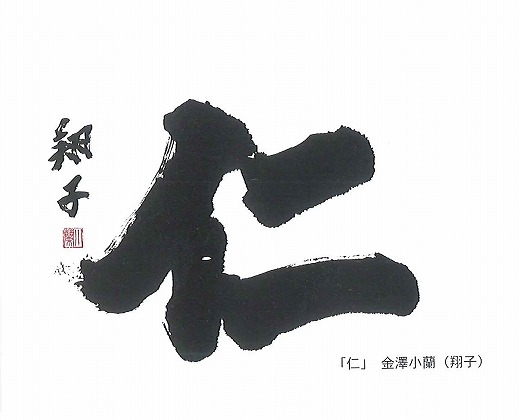 仁
翔子
小蘭
「仁」 金澤小蘭（翔子）